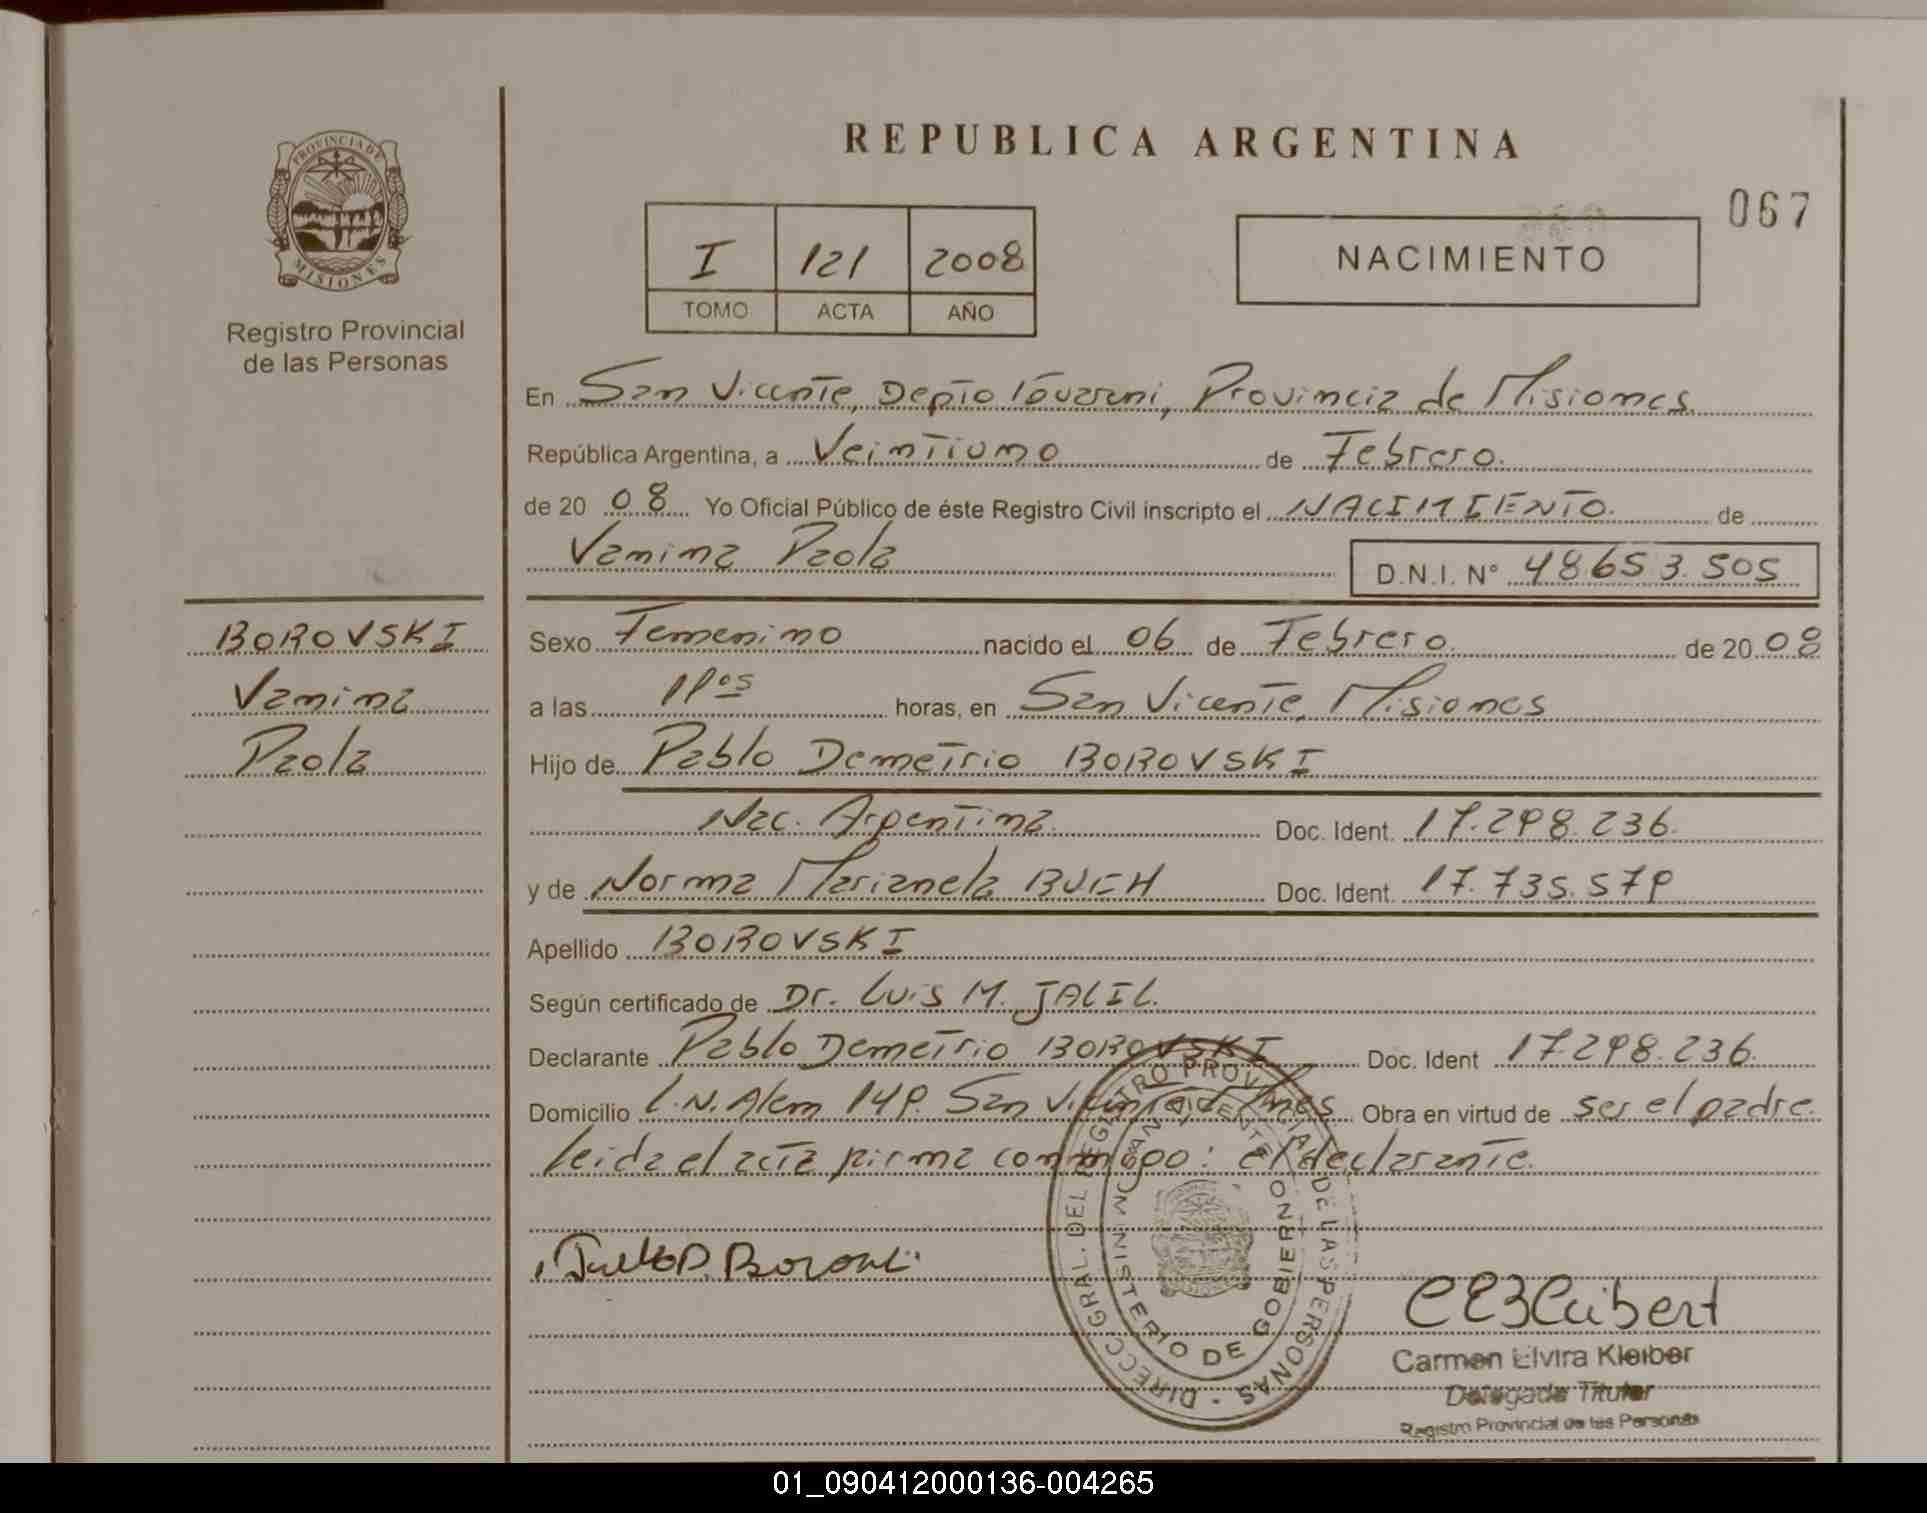 REPUBLICA ARGENTINA
067
PROVINCIA DE
MISIONES
Registro Provincial
de las Personas
I 121 2008
TOMO ACTA AÑO
NACIMIENTO
En San Vicente, Depto Guarani, Provincia de Misiones
República Argentina, a Veintiuno de Febrero.
de 20 08 Yo Oficial Público de éste Registro Civil inscripto el NACIMIENTO. de
Vanina Paola
D.N.I. N° 48653.505
BOROVSKI
Vanina
Paola
Sexo Femenino nacido el 06 de Febrero de 20 08
a las horas, en San Vicente, Misiones
Hijo de Pablo Demetrio BOROVSKI
Nac. Argentina. Doc. Ident. 17.298.236.
y de Norma Marianela BUCH Doc. Ident. 17.735.579
Apellido BOROVSKI
Según certificado de Dr. Luis M. JALIL.
Declarante Pablo Demetrio BOROVSKI Doc. Ident 17.298.236.
Domicilio L.N. Alem 149. San Vicente, Mnes Obra en virtud de ser el padre.
leida el acta firma conmigo: el declarante.
DIRECC. GRAL. DEL REGISTRO PROVINCIAL DE LAS PERSONAS
MINISTERIO DE GOBIERNO
SAN VICENTE
Carmen Elvira Kleiber
Delegada Titular
Registro Provincial de las Personas
01_090412000136-004265